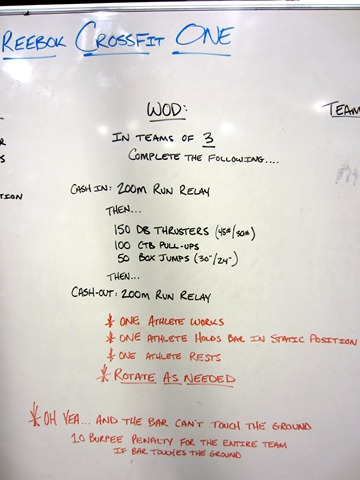 REEBOK CROSSFIT ONE
WOD:
TEAM
IN TEAMS OF 3
COMPLETE THE FOLLOWING....
CASH IN: 200M RUN RELAY
TION
THEN...
150 DB THRUSTERS (45#/30#)
100 CTB PULL-UPS
50 BOX JUMPS (30"/24")
THEN...
CASH-OUT: 200M RUN RELAY
* ONE ATHLETE WORKS
* ONE ATHLETE HOLDS BAR IN STATIC POSITION
* ONE ATHLETE RESTS
* ROTATE AS NEEDED
* OH YEA... AND THE BAR CAN'T TOUCH THE GROUND
10 BURPEE PENALTY FOR THE ENTIRE TEAM
IF BAR TOUCHES THE GROUND